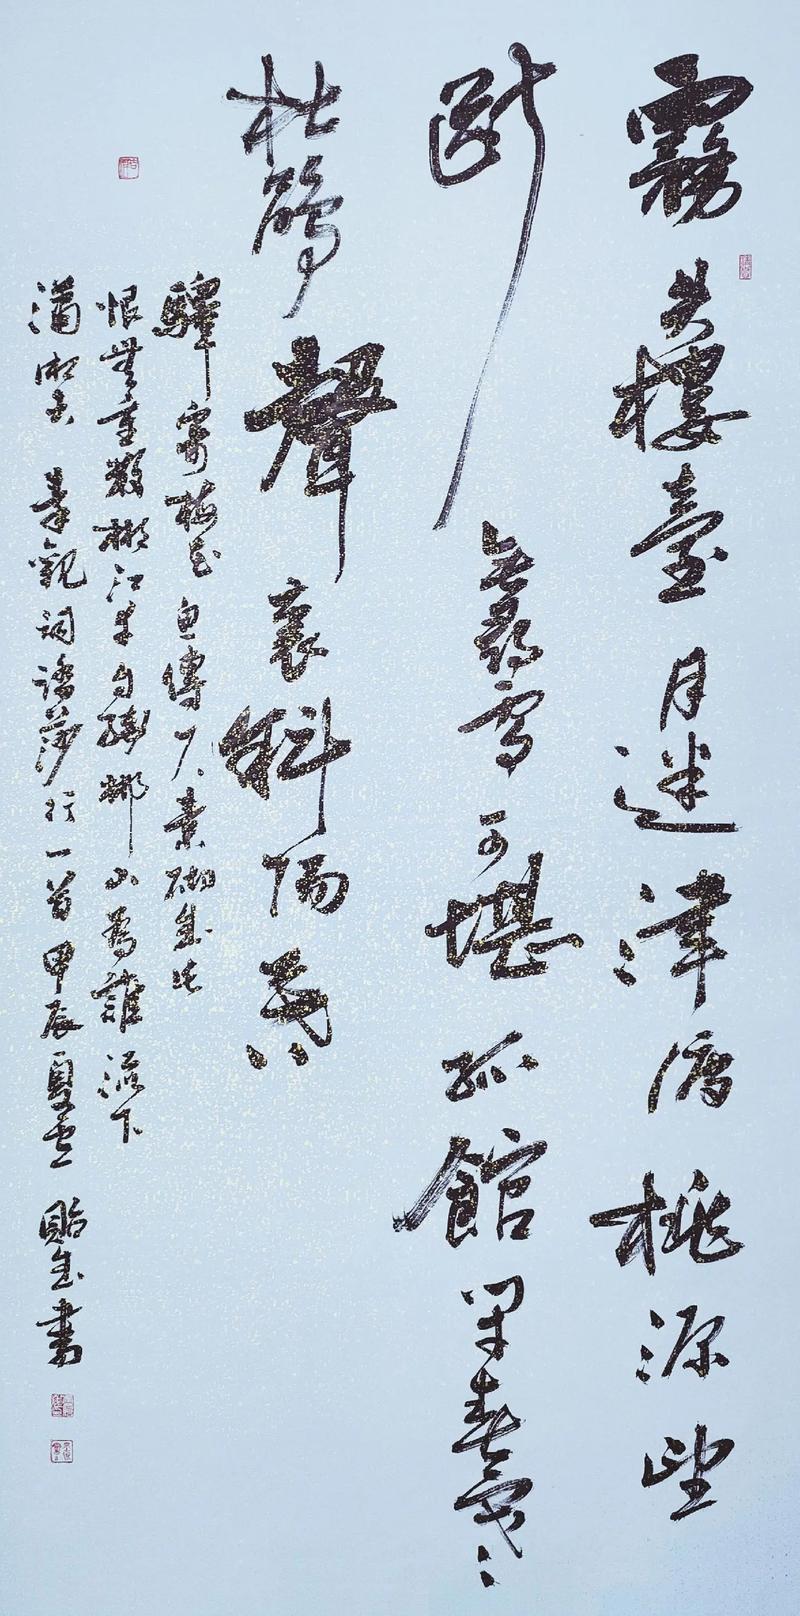 霧失樓臺月迷津渡桃源望
斷無尋處可堪孤館閉春寒
杜鵑聲裏斜陽暮
驛寄梅花魚傳尺素砌成此
恨無重數郴江幸自繞郴山為誰流下
瀟湘去 秦觀詞踏莎行一首甲辰夏 貽成書